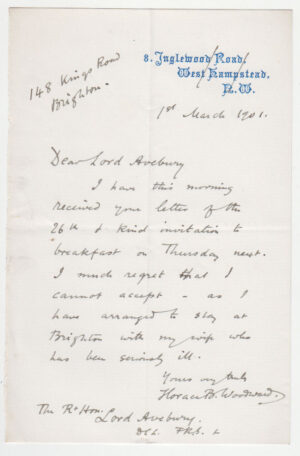 8. Inglewood Road,
West Hampstead,
N.W.
148 Kings Road
Brighton.
1st March 1901.
Dear Lord Avebury
I have this morning
received your letter of the
26th & kind invitation to
breakfast on Thursday next.
I much regret that I
cannot accept - as I
have arranged to stay at
Brighton with my wife who
has been seriously ill.
Yours very truly
Horace B. Woodward.
The Rt Hon.
Lord Avebury.
DCL. FRS.